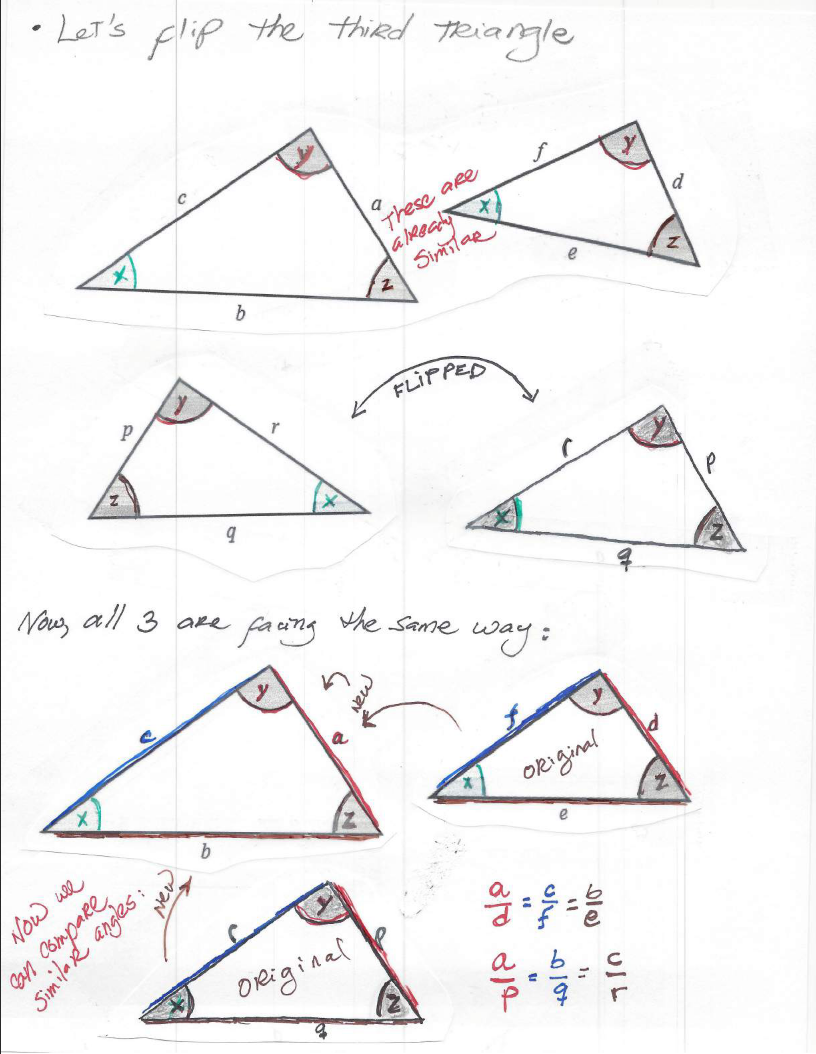 • Let's flip the third triangle
y
f
y
c
a
These are
already
similar
x
d
x
z
z
e
b
FLIPPED
y
p
r
y
r
p
z
x
x
z
q
q
Now, all 3 are facing the same way:
y
New
y
c
a
f
d
original
x
z
x
z
b
e
Now we
can compare
similar angles:
New
y
r
p
original
x
z
q
a/d = c/f = b/e
a/p = b/q = c/r